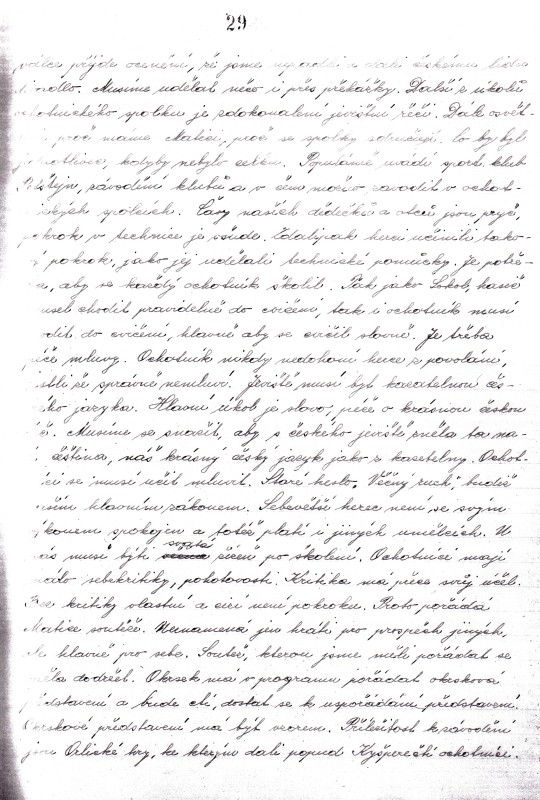 29
přijde ocenění, že jsme nepadli a dali českému lidu
divadlo. Musíme udělat něco i přes překážky. Další z úkolů
ochotnického spolku je zdokonalení jevištní řeči. Dále osvět-
proč máme Matici, proč se spolky sdružují. Co by byl
jednotlivec, kdyby nebylo celku. Populárně uvádí sport. klub
závodění klubů a v čem možno závodit v ochot-
nických spolcích. Časy našich dědečků a otců jsou pryč,
pokrok v technice je všude. Zdalipak herci učinili tako-
pokrok, jako jej udělali technické pomůcky. Je potře-
a, aby se každý ochotník školil. Tak jako Sokol, hasič
musel chodit pravidelně do cvičení, tak i ochotník musí
odit do cvičení, hlavně aby se cvičil slovně. Je třeba
péče mluvy. Ochotník nikdy nedohoní herce z povolání,
stli že správně nemluví. Jeviště musí být kazatelnou čes-
kého jazyka. Hlavní úkol je slovo, péče o krásnou českou
řeč. Musíme se snažit, aby s českého jeviště zněla ta na-
čeština, náš krásný český jazyk jako z kazatelny. Ochot-
íci se musí učit mluvit. Staré heslo, Věčný ruch, budiž
naším hlavním zákonem. Sebevětší herec není se svým
výkonem spokojen a totéž platí i jiných umělcích. U
nás musí býti svatá žízeň po školení. Ochotníci mají
málo sebekritiky, pohotovosti. Kritika má přece svůj účel.
Bez kritiky vlastní a cizí není pokroku. Proto pořádá
Matice soutěže. Neznamená jen hráti pro prospěch jiných,
ale hlavně pro sebe. Soutěž, kterou jsme měli pořádat se
měla dodržet. Okrsek má v programu pořádat okrsková
představení a bude ctí, dostat se k uspořádání představení.
Okrskové představení má být vzorem. Příležitost k závodění
jsou Orlické hry, ke kterým dali popud Kyšperečtí ochotníci.